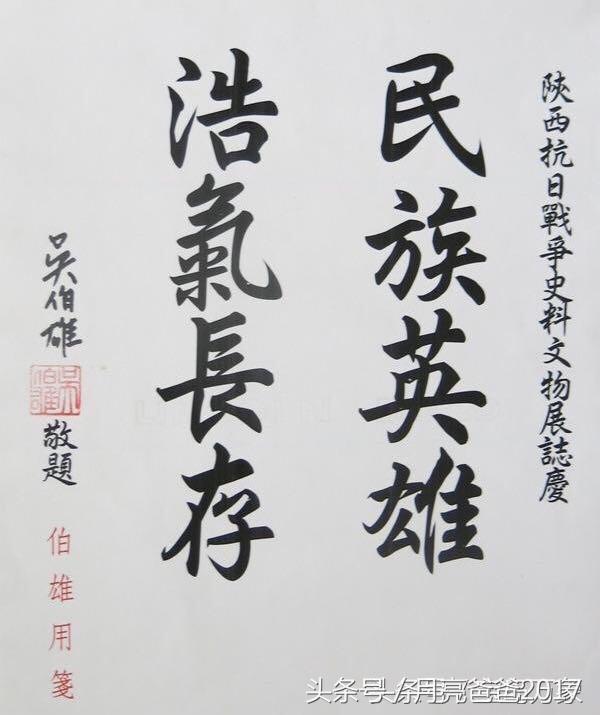 陝西抗日戰爭史料文物展誌慶
民族英雄
浩氣長存
吳伯雄
敬題
伯雄用箋